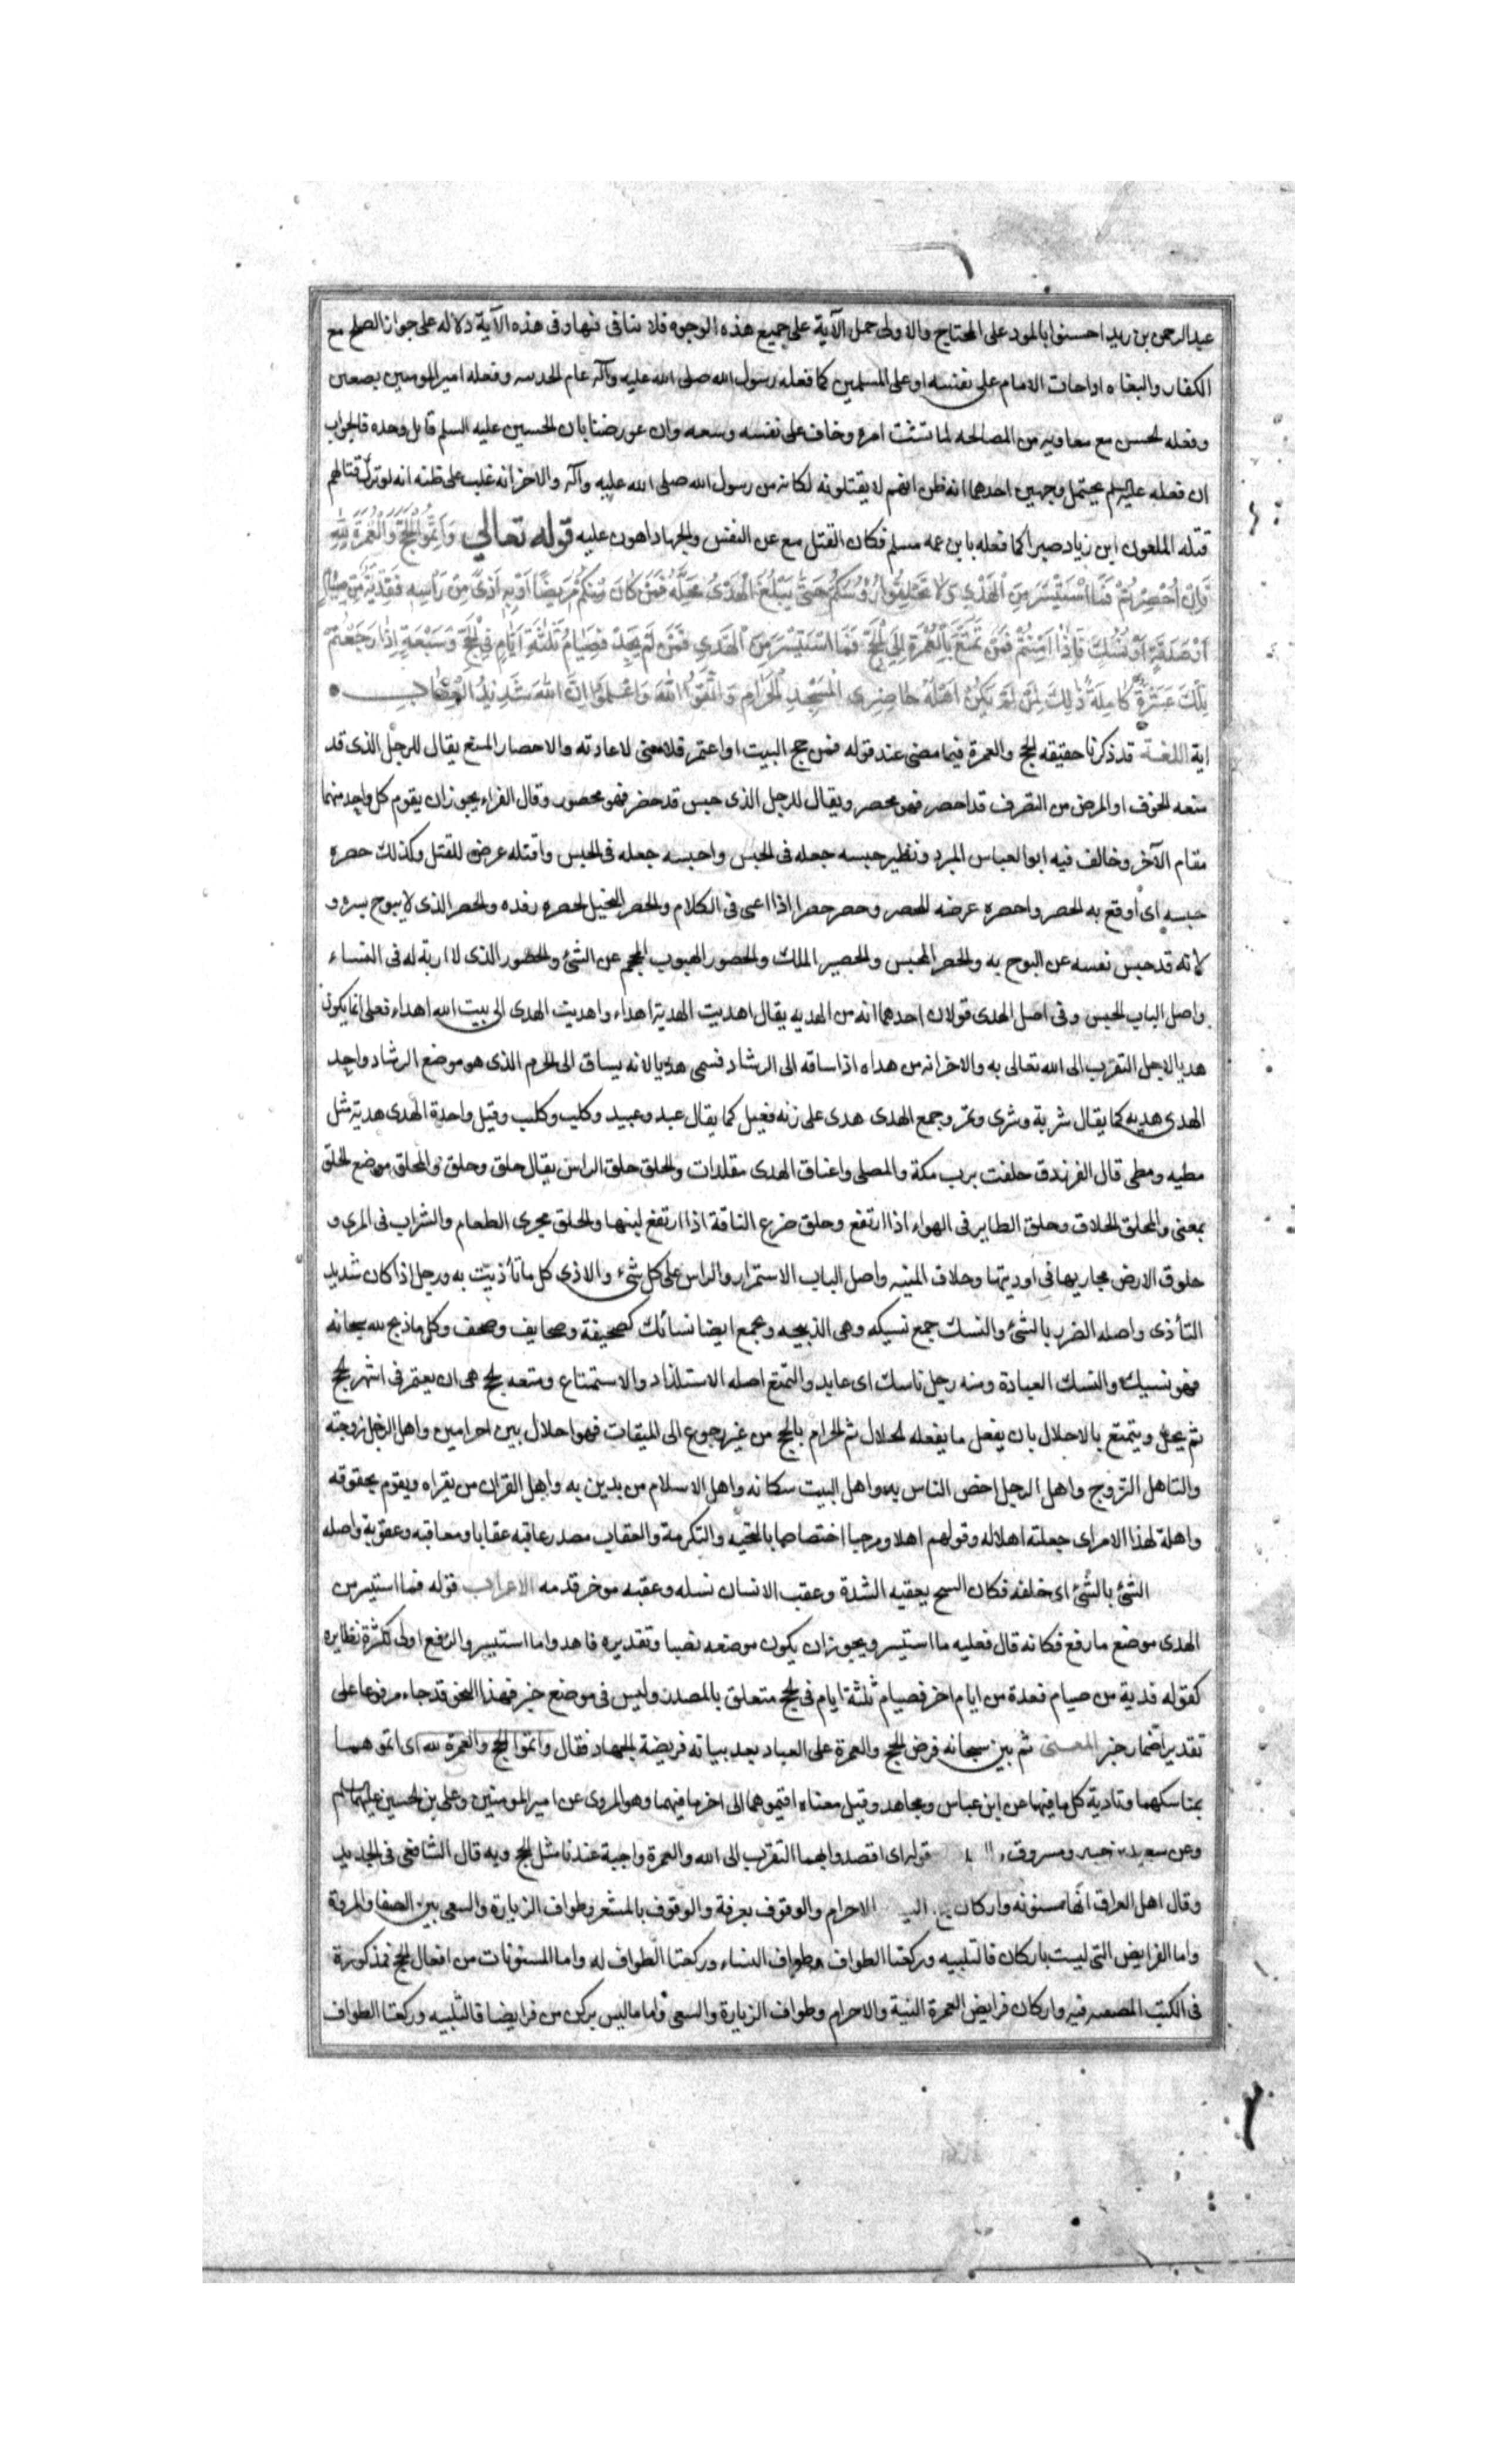 عبدالرحمن بن زيد احسنوا بالعود على المحتاج والاولى حمل الآية على جميع هذه الوجوه فلا تنافى فيها وفى هذه الآية دلاله على جواز الصلح مع
الكفار والبغاه اذا خاف الامام على نفسه او على المسلمين كما فعله رسول الله صلى الله عليه وآله عام الحديبيه وفعله امير المومنين بصفين
وفعله الحسن مع معاويه من المصالحه لما تشتت امره وخاف على نفسه وشيعه وان عورضنا بان الحسين عليه السلم قاتل وحده فالجواب
ان فعله عليه السلم يحتمل وجهين احدهما انه ظن انهم لا يقتلونه لمكانه من رسول الله صلى الله عليه وآله والاخر انه غلب على ظنه انه لو ترك قتالهم
قتله الملعون ابن زياد صبرا كما فعله بابن عمه مسلم فكان القتل مع عز النفس والجهاد اهون عليه قوله تعالي وَاَتِمُّوا الْحَجَّ وَالْعُمْرَةَ لِلّٰهِ
فَاِنْ اُحْصِرْتُمْ فَمَا اسْتَيْسَرَ مِنَ الْهَدْيِ وَلَا تَحْلِقُوا رُؤُسَكُمْ حَتّٰى يَبْلُغَ الْهَدْىُ مَحِلَّهُ فَمَنْ كَانَ مِنْكُمْ مَرِيضًا اَوْ بِهِ اَذًى مِنْ رَاْسِهِ فَفِدْيَةٌ مِنْ صِيَامٍ
اَوْ صَدَقَةٍ اَوْ نُسُكٍ فَاِذَا اَمِنْتُمْ فَمَنْ تَمَتَّعَ بِالْعُمْرَةِ اِلَى الْحَجِّ فَمَا اسْتَيْسَرَ مِنَ الْهَدْيِ فَمَنْ لَمْ يَجِدْ فَصِيَامُ ثَلٰثَةِ اَيَّامٍ فِى الْحَجِّ وَسَبْعَةٍ اِذَا رَجَعْتُمْ
تِلْكَ عَشَرَةٌ كَامِلَةٌ ذٰلِكَ لِمَنْ لَمْ يَكُنْ اَهْلُهُ حَاضِرِى الْمَسْجِدِ الْحَرَامِ وَاتَّقُوا اللّٰهَ وَاعْلَمُوا اَنَّ اللّٰهَ شَدِيدُ الْعِقَابِ
اية اللغة قد ذكرنا حقيقه الحج والعمرة فيما مضى عند قوله فمن حج البيت او اعتمر فلا معنى لاعادته والاحصار المنع يقال للرجل الذى قد
منعه الخوف او المرض من التصرف قد احصر فهو محصر ويقال للرجل الذى حبس قد حصر فهو محصور وقال الفراء يجوز ان يقوم كل واحد منهما
مقام الآخر وخالف فيه ابو العباس المبرد ونظير حبسه جعله فى الحبس واحبسه جعله فى الحبس واقتله عرض للقتل وكذلك حصره
حبسه اى أوقع به الحصر واحصره عرضه للحصر وحصر حصرا اذا اعى فى الكلام والحصر البخيل لحصره رفده والحصر الذى لا يبوح بسره و
لانه قد حبس نفسه عن البوح به والحصر المحبس والحصير الملك والحصور الهيوب المحجم عن الشئ والحصور الذى لا اربة له فى النساء
واصل الباب الحبس وفى اصل الهدى قولان احدهما انه من الهديه يقال اهديت الهدية اهداء واهديت الهدى الى بيت الله اهداء فعلى انما يكون
هديا لاجل التقرب الى الله تعالى به والاخر انه من هداه اذا ساقه الى الرشاد فسمى هديا لانه يساق الى الحرم الذى هو موضع الرشاد واحد
الهدى هديه كما يقال شربة وشرى وتمر وجمع الهدى هدى على زنه فعيل كما يقال عبد وعبيد وكليب وكلب وقيل واحدة الهدى هدية مثل
مطيه ومطى قال الفرزدق حلفت برب مكة والمصلى واعناق الهدى مقلدات والحلق حلق الراس يقال حلق وحلق والمحلق موضع الحلق
بمعنى والمحلق الحلاق وحلق الطاير فى الهواء اذا ارتفع وحلق ضرع الناقة اذا ارتفع لبنها والحلق مجرى الطعام والشراب فى المرى و
حلوق الارض مجاريها فى اوديتها وحلاق المنيه واصل الباب الاستمرار والراس على كل شئ والاذى كل ما تأذيت به ورجل اذا كان شديد
التأذى واصله الضرر بالشئ والنسك جمع نسيكه وهى الذبيحه ويجمع ايضا نسائك كصحيفة وصحايف وصحف وكل ما ذبح لله سبحانه
فهو نسيك والنسك العبادة ومنه رجل ناسك اى عابد والتمتع اصله الاستلذاذ والاستمتاع ومتعه الحج هى ان يعتمر فى اشهر الحج
ثم يحل ويتمتع بالاحلال بان يفعل ما يفعله الحلال ثم يحرم بالحج من غير رجوع الى الميقات فهو احلال بين احرامين واهل الرجل زوجته
والتاهل التزوج واهل الرجل اخص الناس به واهل البيت سكانه واهل الاسلام من يدين به واهل القران من يقراه ويقوم بحقوقه
واهلة لهذا الامر اى جعلته اهلا له وقولهم اهلا ومرحبا اختصاصا بالتحيه والتكرمة والعقاب مصدر عاقبه عقابا ومعاقبه وعقوبة واصله
الشئ بالشئ اى خلفه فكان السح يعقبه الشدة وعقب الانسان نسله وعقبه موخر قدمه الاعراب قوله فما استيسر من
الهدى موضع ما رفع فكانه قال فعليه ما استيسر ويجوز ان يكون موضعه نصبا وتقديره فاهدوا ما استيسر والرفع اولى لكثرة نظايره
كقوله فدية من صيام فعدة من ايام اخر فصيام ثلثة ايام فى الحج متعلق بالمصدر وليس فى موضع خبر فهذا النحو قد جاء مرفوعا على
تقدير اضمار خبر المعنى ثم بين سبحانه فرض الحج والعمرة على العباد بعد بيانه فريضة الجهاد فقال واتموا الحج والعمرة لله اى اتموهما
بمناسكهما وتادية كل ما فيها عن ابن عباس ومجاهد وقيل معناه اقيموهما الى اخر ما فيهما وهو المروى عن امير المومنين وعلى بن الحسين عليهما السلم
وعن سعيد بن جبير ومسروق قوله اى اقصدوا بهما التقرب الى الله والعمرة واجبة عندنا مثل الحج وبه قال الشافعى فى الجديد
وقال اهل العراق انها مسنونه واركان الاحرام والوقوف بعرفة والوقوف بالمشعر وطواف الزيارة والسعى بين الصفا والمروة
واما الفرايض التى ليست باركان فالتلبيه وركعتا الطواف وطواف النساء وركعتا الطواف له واما المسنونات من افعال الحج فمذكورة
فى الكتب المصنفه فيه واركان فرايض العمرة النية والاحرام وطواف الزيارة والسعى واما ما ليس بركن من فرايضها فالتلبيه وركعتا الطواف